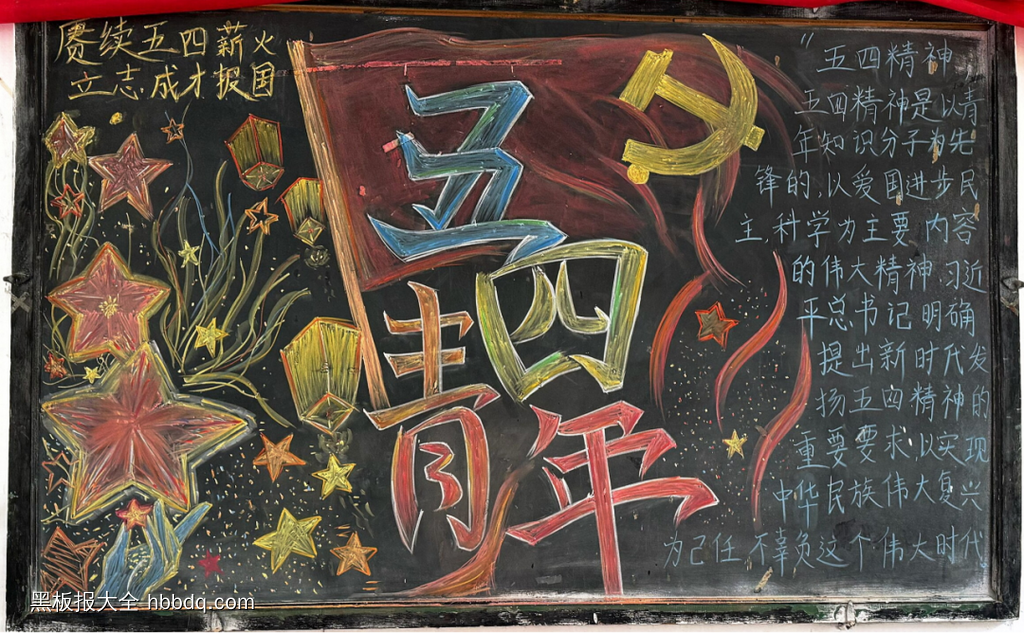 赓续五四薪火
立志成才报国
五四
青年
"五四精神
五四精神是以青
年知识分子为先
锋的,以爱国进步民
主,科学为主要内容
的伟大精神,习近
平总书记明确
提出新时代发
扬五四精神的
重要要求,以实现
中华民族伟大复兴
为己任,不辜负这个伟大时代。
黑板报大全 hbbdq.com